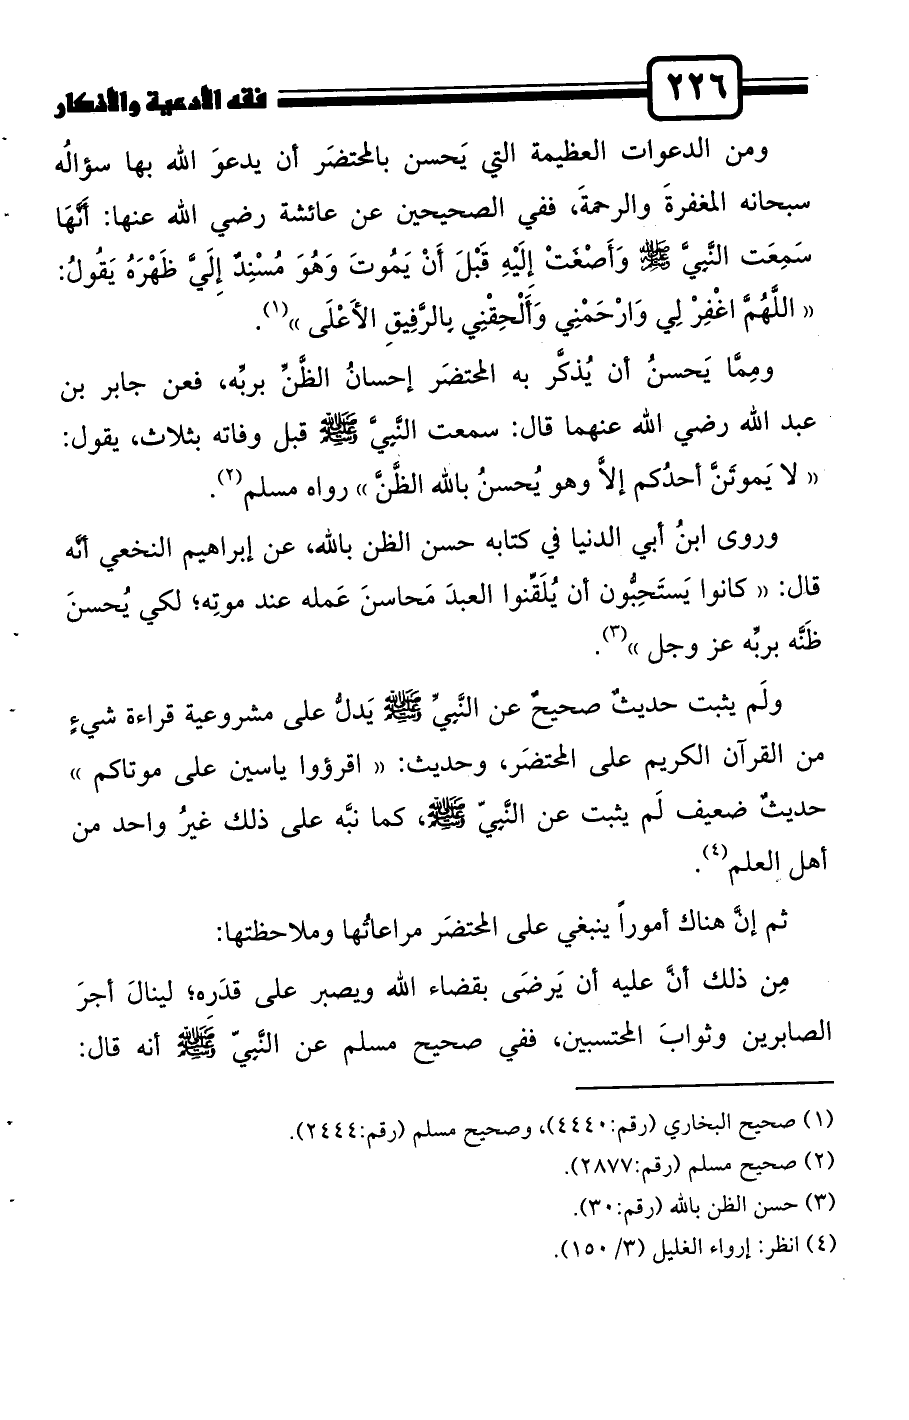 ٢٢٦ فقه الأدعية والأذكار
ومن الدعوات العظيمة التي يَحسن بالمحتضَر أن يدعوَ الله بها سؤالُه
سبحانه المغفرةَ والرحمةَ، ففي الصحيحين عن عائشة رضي الله عنها: أنَّهَا
سَمِعَت النَّبِيَّ ﷺ وَأَصْغَتْ إِلَيْهِ قَبْلَ أَنْ يَمُوتَ وَهُوَ مُسْنِدٌ إِلَيَّ ظَهْرَهُ يَقُولُ:
« اللَّهُمَّ اغْفِرْ لِي وَارْحَمْنِي وَأَلْحِقْنِي بِالرَّفِيقِ الأَعْلَى »(١).
ومِمَّا يَحسنُ أن يُذكَّر به المحتضَر إحسانُ الظَّنِّ بربِّه، فعن جابر بن
عبد الله رضي الله عنهما قال: سمعت النَّبِيَّ ﷺ قبل وفاته بثلاث، يقول:
« لا يَموتَنَّ أحدُكم إلاَّ وهو يُحسنُ بالله الظَّنَّ » رواه مسلم(٢).
وروى ابنُ أبي الدنيا في كتابه حسن الظن بالله، عن إبراهيم النخعي أنَّه
قال: « كانوا يَستَحِبُّون أن يُلَقِّنوا العبدَ مَحاسنَ عَمله عند موتِه؛ لكي يُحسنَ
ظَنَّه بربِّه عز وجل »(٣).
ولَم يثبت حديثٌ صحيحٌ عن النَّبِيِّ ﷺ يَدلُّ على مشروعية قراءة شيءٍ
من القرآن الكريم على المحتضَر، وحديث: « اقرؤوا ياسين على موتاكم »
حديثٌ ضعيف لَم يثبت عن النَّبِيّ ﷺ، كما نبَّه على ذلك غيرُ واحد من
أهل العلم(٤).
ثم إنَّ هناك أموراً ينبغي على المحتضَر مراعاتُها وملاحظتها:
مِن ذلك أنَّ عليه أن يَرضَى بقضاء الله ويصبر على قدَرِه؛ لينالَ أجرَ
الصابرين وثوابَ المحتسبين، ففي صحيح مسلم عن النَّبِيّ ﷺ أنه قال:
(١) صحيح البخاري (رقم:٤٤٤٠)، وصحيح مسلم (رقم:٢٤٤٤).
(٢) صحيح مسلم (رقم:٢٨٧٧).
(٣) حسن الظن بالله (رقم:٣٠).
(٤) انظر: إرواء الغليل (٣/ ١٥٠).